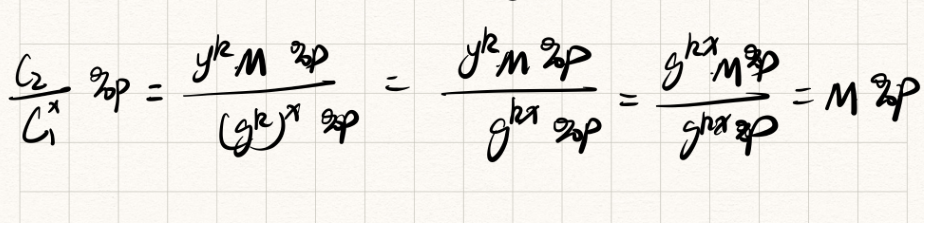 C₂/C₁ˣ %p = yᵏM %p/(gᵏ)ˣ %p = yᵏM %p/gᵏˣ %p = gᵏˣM %p/gᵏˣ %p = M %p